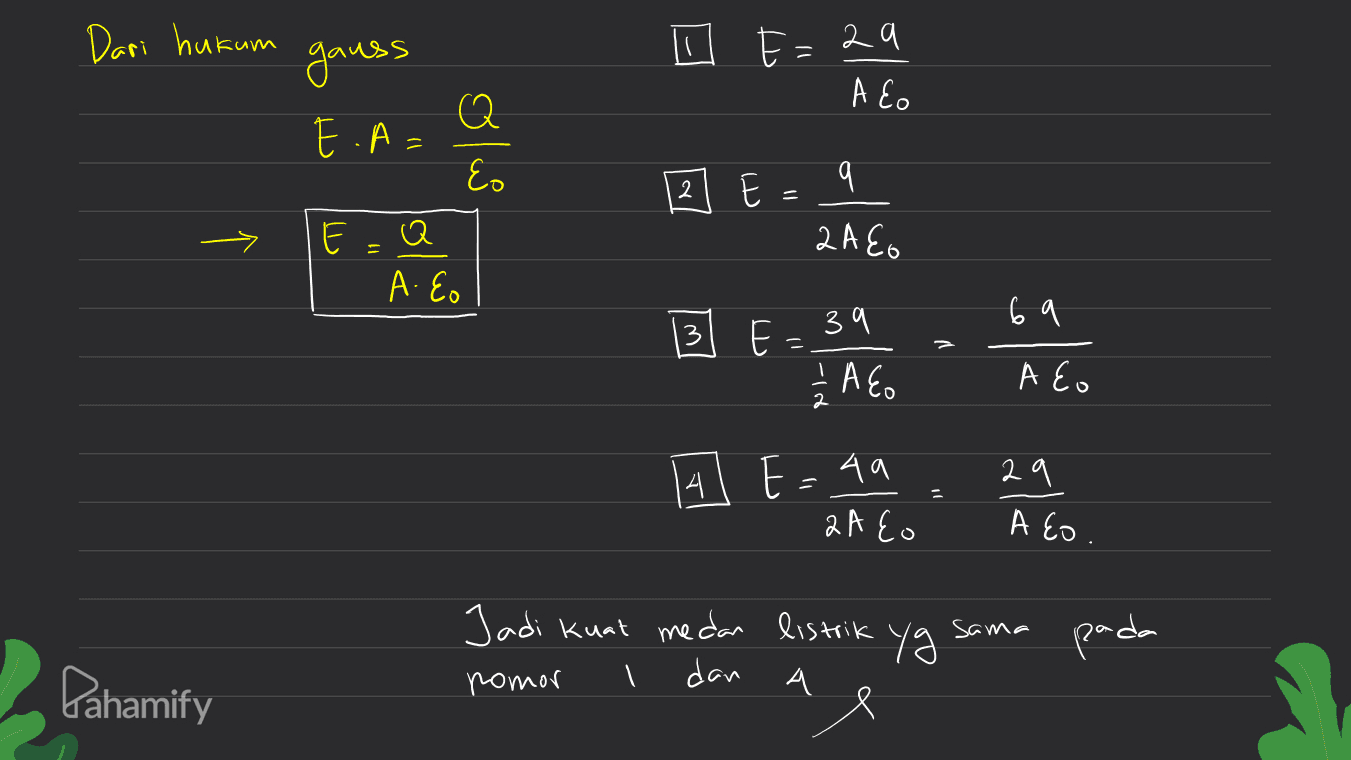 Dari hukum gauss
E . A = Q / ε0
→ E = Q / A . ε0
1 E = 2q / A ε0
2 E = q / 2A ε0
3 E = 3q / ½ A ε0 = 6q / A ε0
4 E = 4q / 2A ε0 = 2q / A ε0.
Jadi kuat medan listrik yg sama pada
nomor 1 dan 4
Pahamify